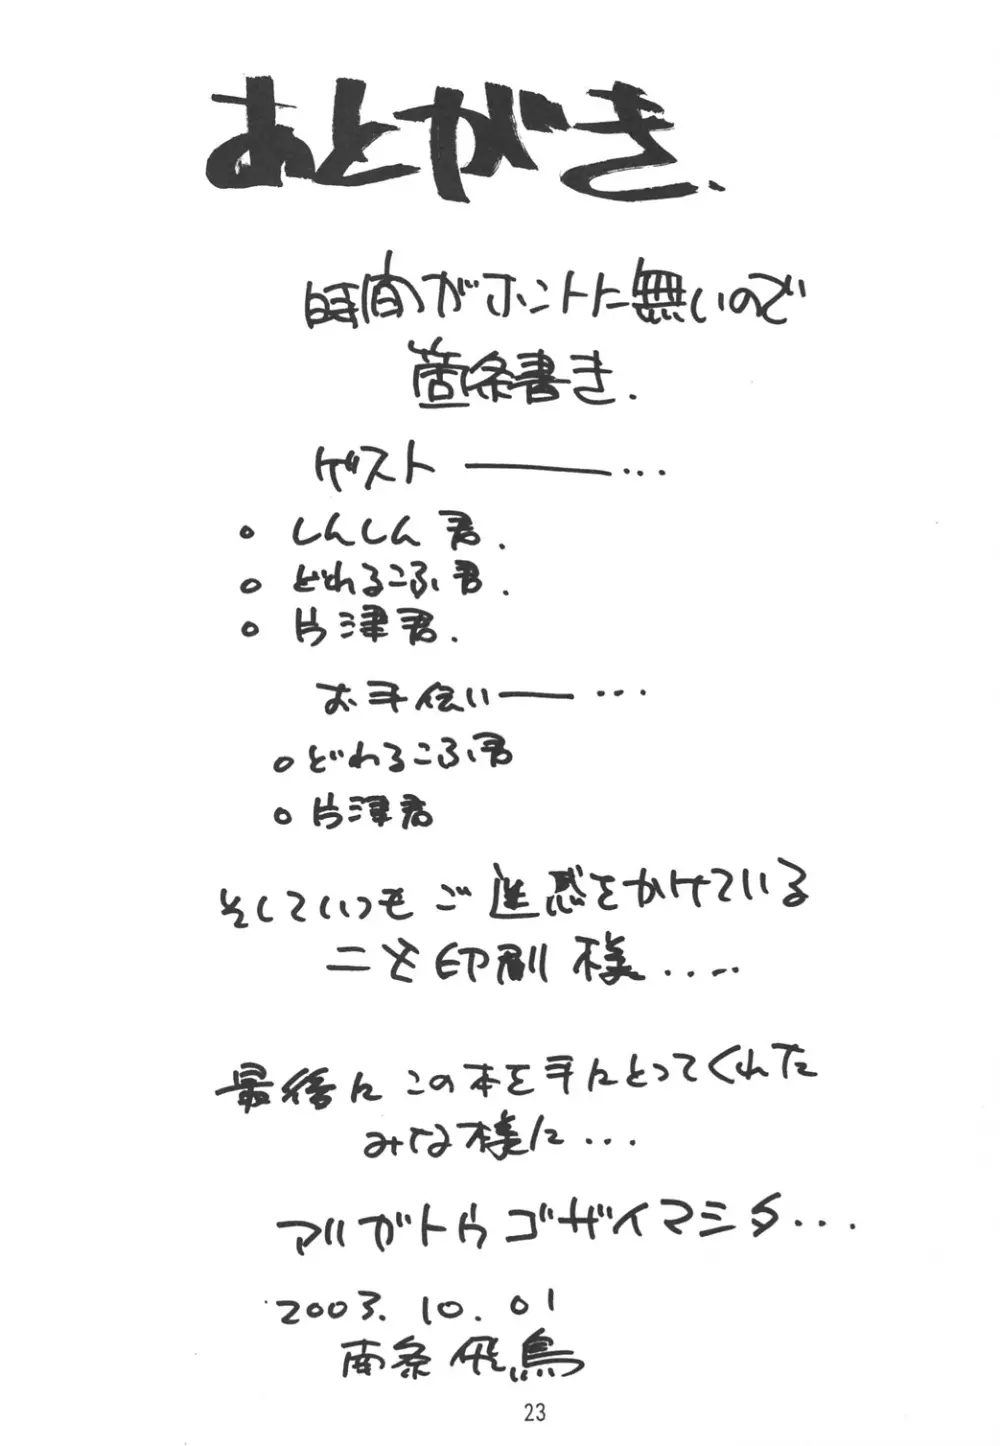 あとがき.
時間がホントに無いので
箇条書き.
ゲスト ―――...
○ しんしん君.
○ どれるこふ君.
○ 片津君.
お手伝い――...
○ どわるこふ君
○ 片津君
そしていつもご迷惑をかけている
ニと印刷様.....
最後に この本を手にとってくれた
みな様に...
アリガトウゴザイマシタ...
2003.10.01
南条飛鳥
23